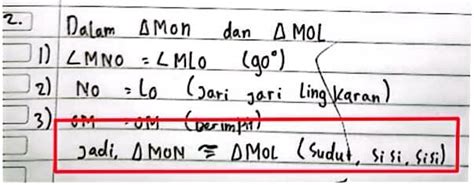 2. Dalam ΔMON dan ΔMOL
1) ∠MNO = ∠MLO (90°)
2) NO = LO (jari jari lingkaran)
3) OM = OM (berimpit)
Jadi, ΔMON ≅ ΔMOL (sudut, sisi, sisi)